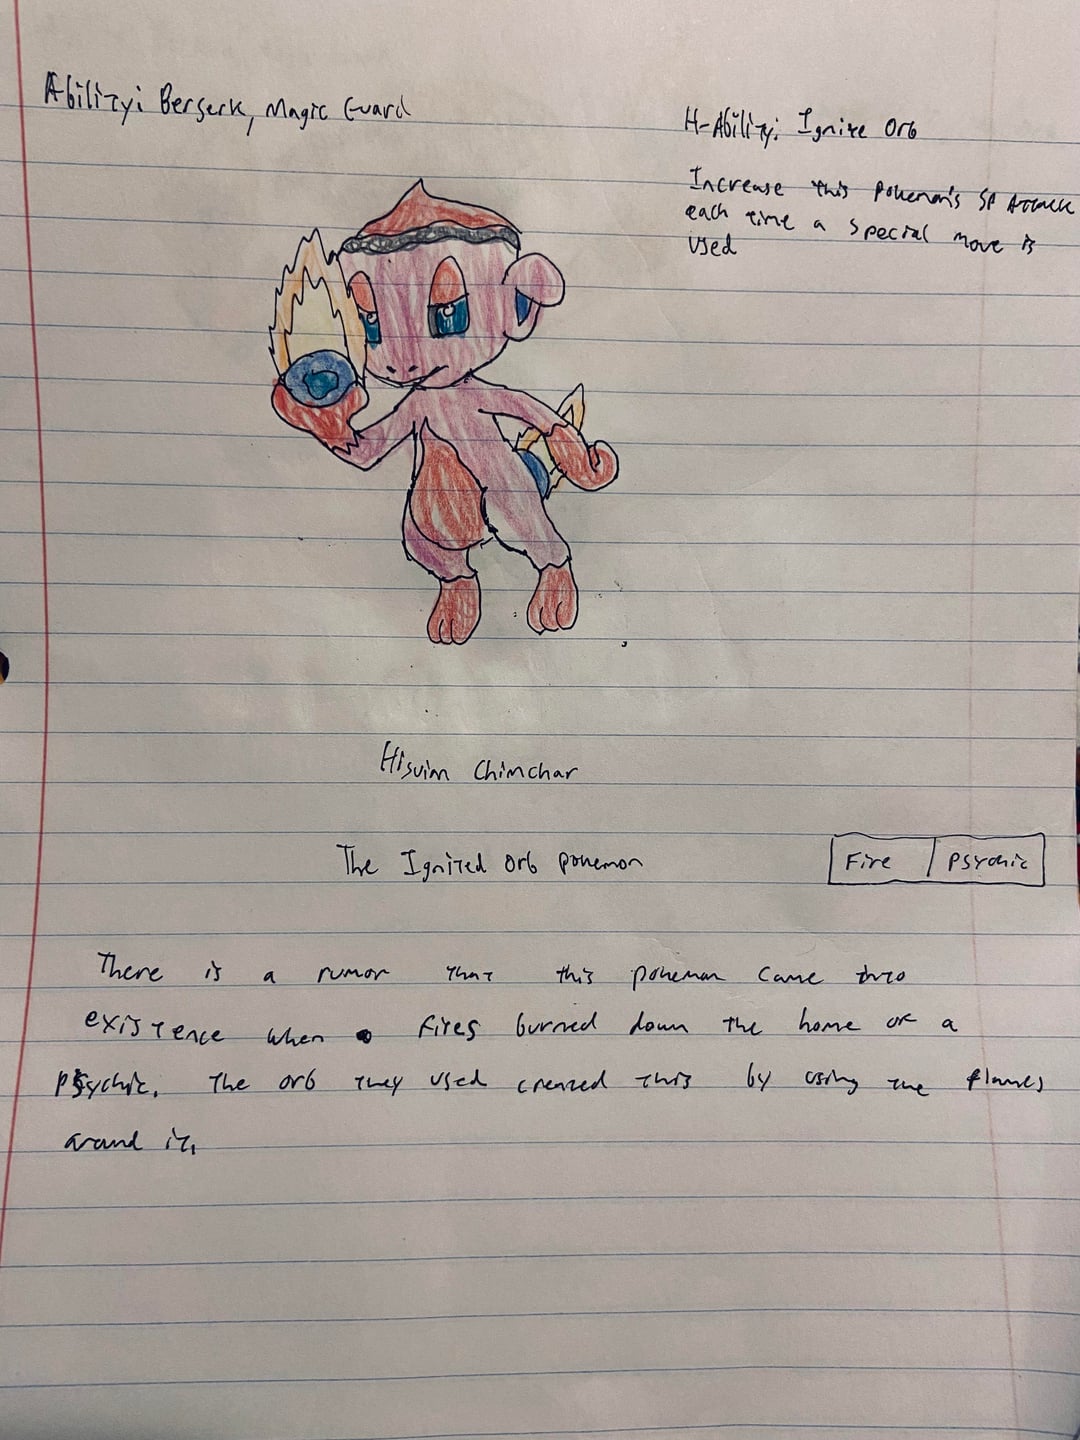 Ability: Berserk, Magic Guard
H-Ability: Ignite Orb
Increase this Pokemon's SP Attack
each time a special move is
used
Hisuin Chimchar
The Ignited Orb Pokemon
Fire Psychic
There is a rumor that this pokemon came into
existence when fires burned down the home of a
psychic. The orb they used created this by using the flames
around it.